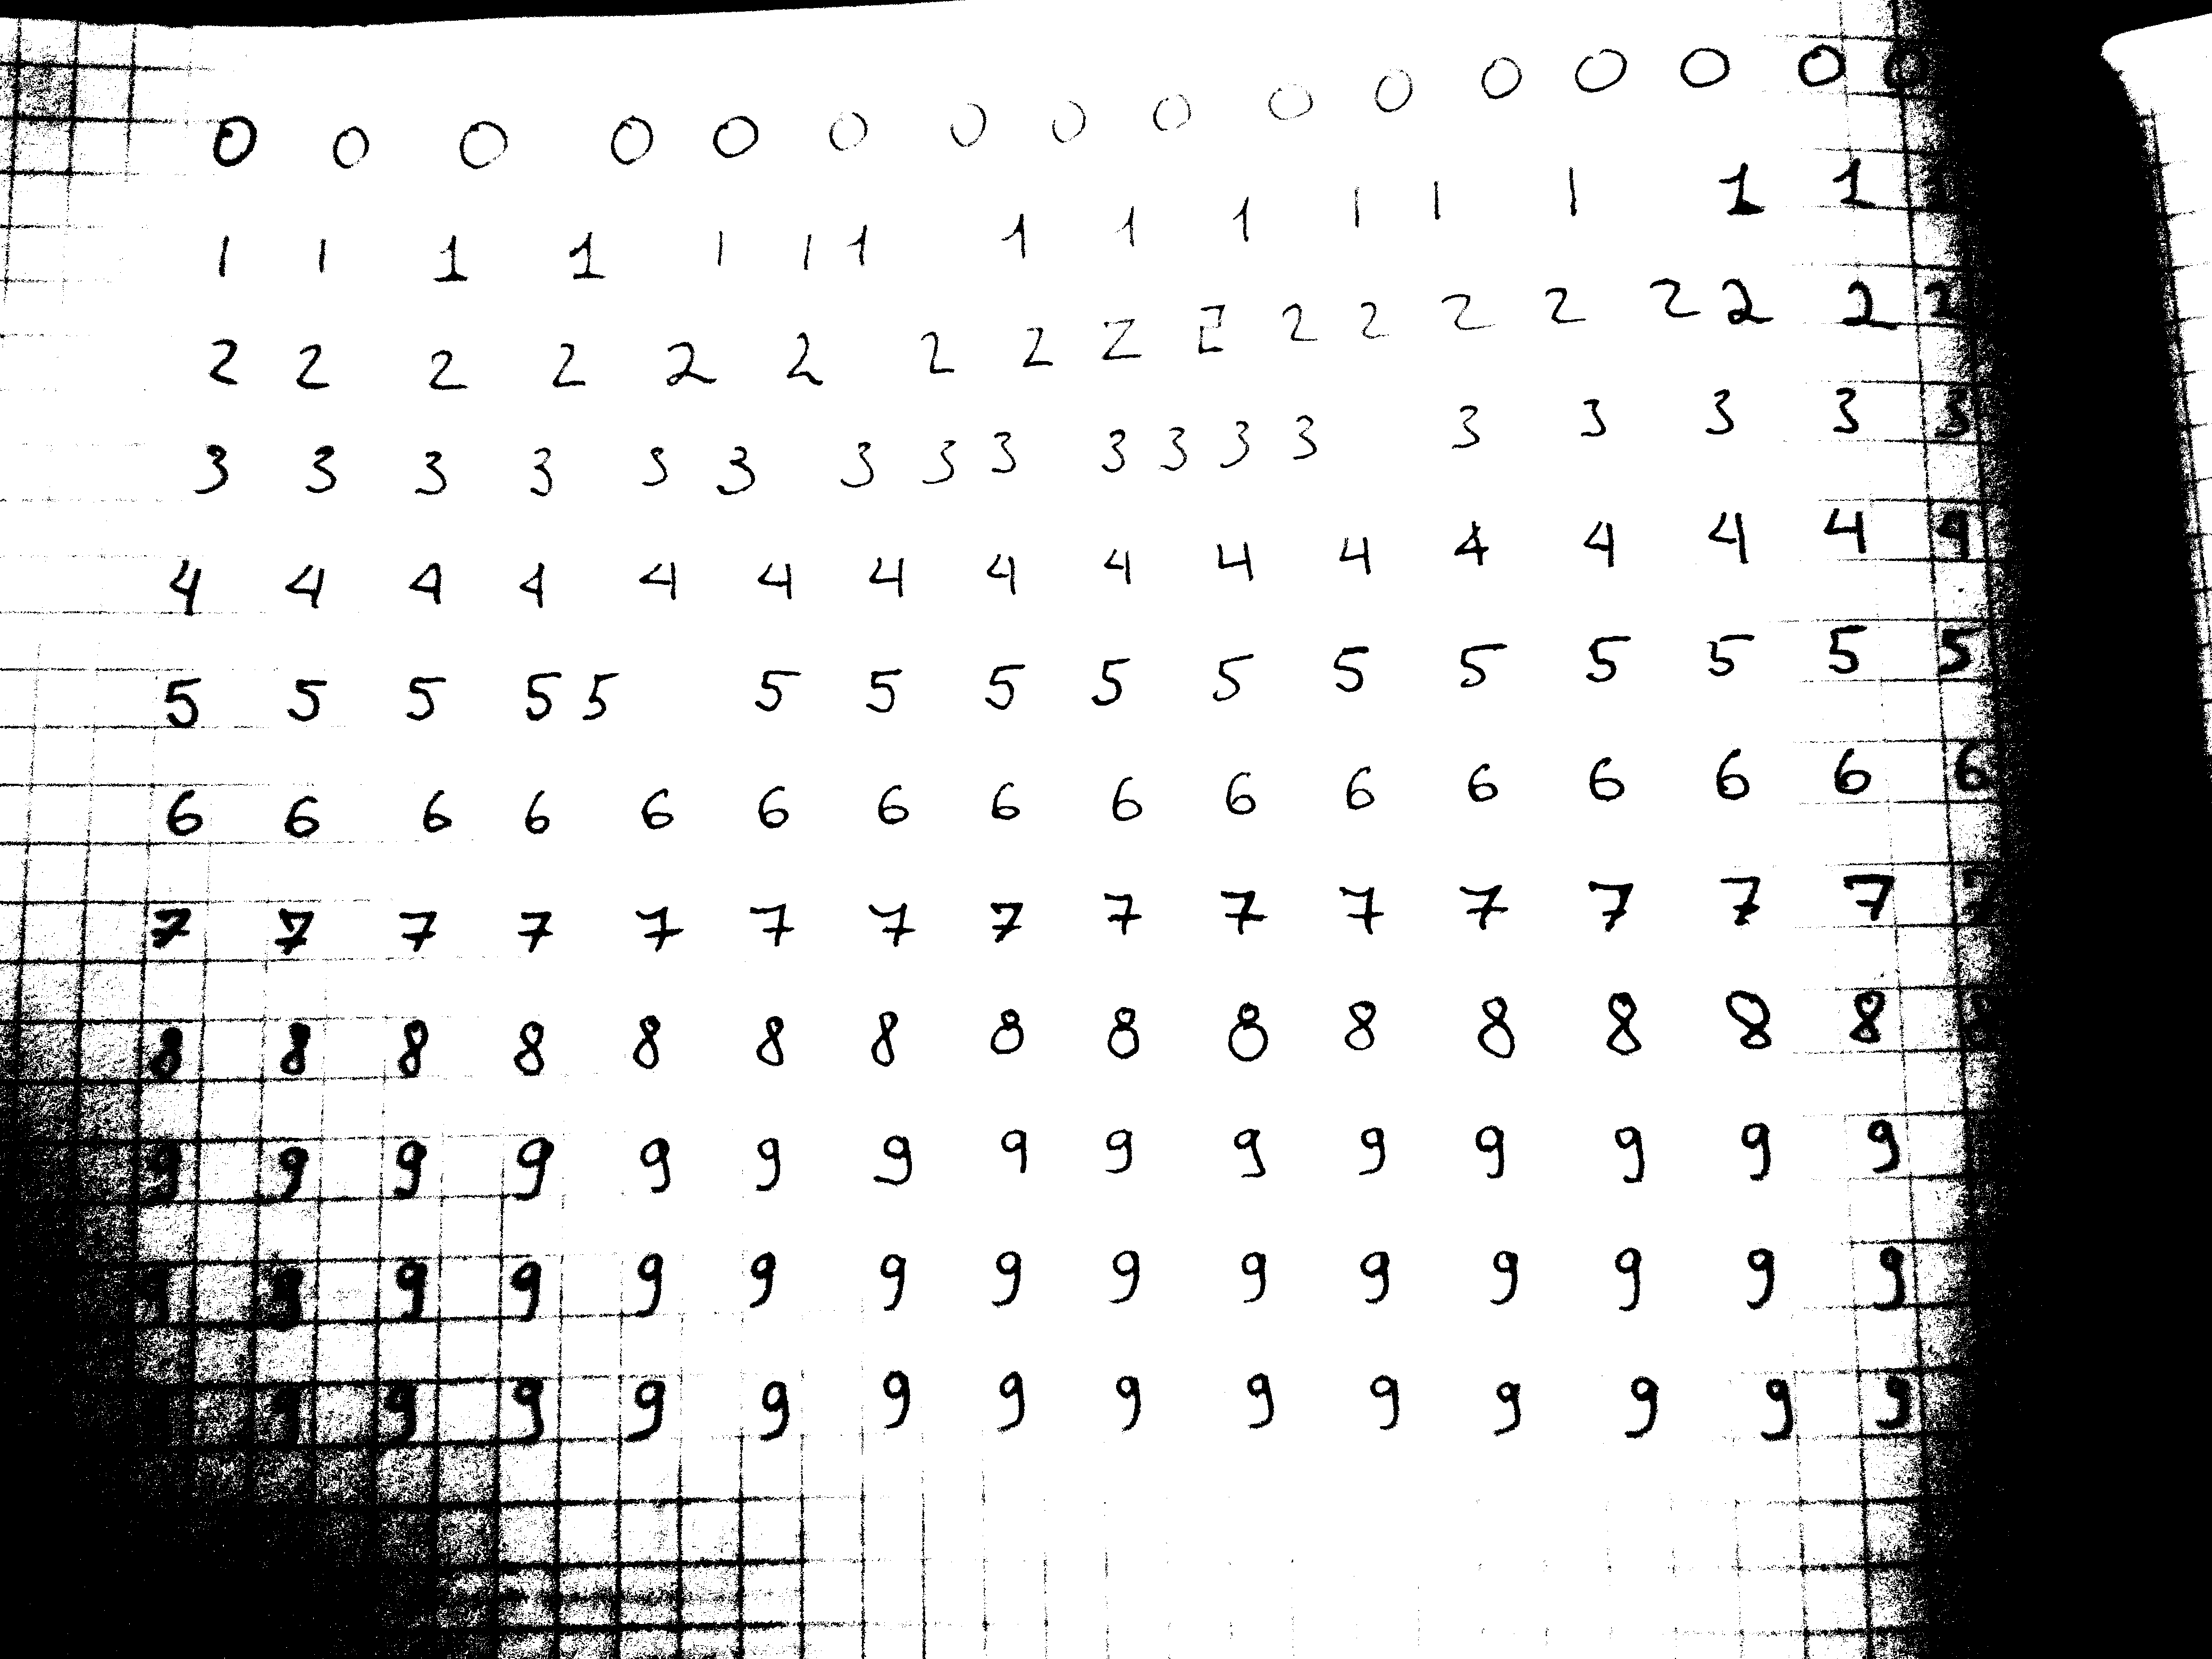 0 0 0 0 0 0 0 0 0 0 0 0 0 0 0 0
1 1 1 1 1 1 1 1 1 1 1 1 1 1 1
2 2 2 2 2 2 2 2 2 2 2 2 2 2 2 2 2 2
3 3 3 3 3 3 3 3 3 3 3 3 3 3 3 3 3 3
4 4 4 4 4 4 4 4 4 4 4 4 4 4 4 4
5 5 5 5 5 5 5 5 5 5 5 5 5 5 5 5
6 6 6 6 6 6 6 6 6 6 6 6 6 6 6 6
7 7 7 7 7 7 7 7 7 7 7 7 7 7 7 7
8 8 8 8 8 8 8 8 8 8 8 8 8 8 8
9 9 9 9 9 9 9 9 9 9 9 9 9 9 9
9 9 9 9 9 9 9 9 9 9 9 9 9 9 9
9 9 9 9 9 9 9 9 9 9 9 9 9 9